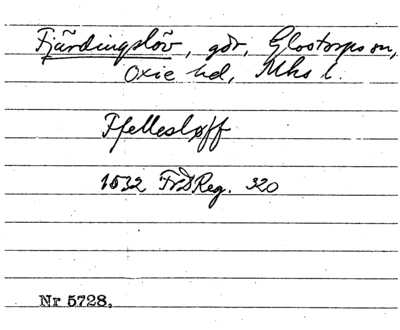 Fjärdingslöv, går, Glostorps sn,
Oxie hd, Mhs l.
Ffellesløff
1532 FrDReg. 320
Nr 5728,